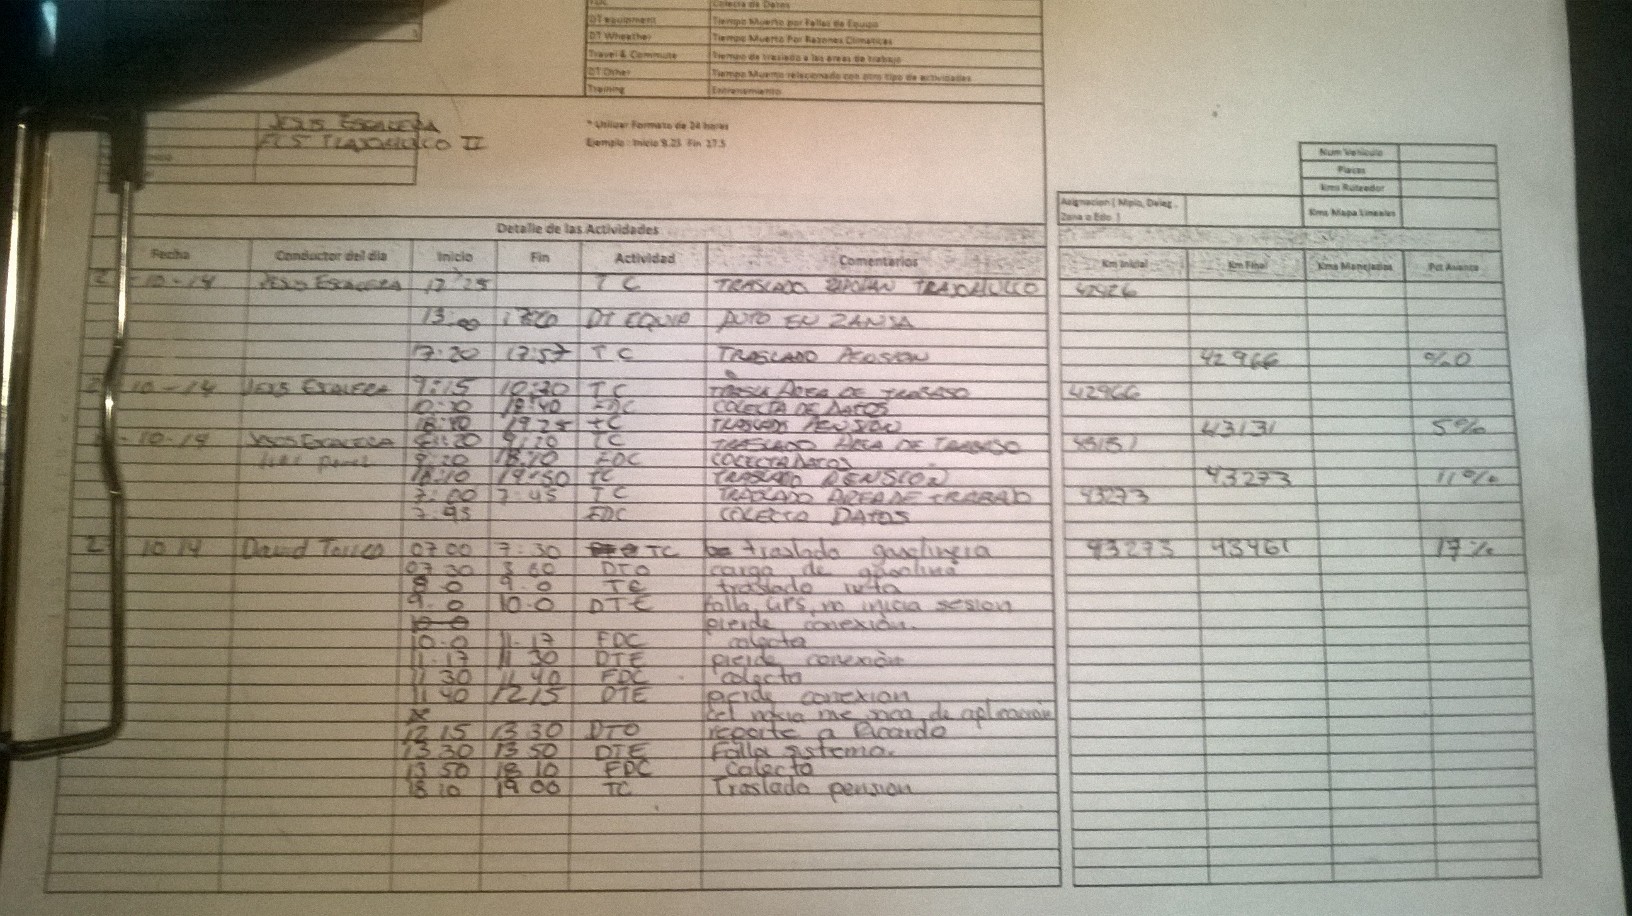 Colecta de Datos
DT equipment Tiempo Muerto por Fallas de Equipo
DT Wheather Tiempo Muerto Por Razones Climaticas
Travel & Commute Tiempo de traslado a las areas de trabajo
DT Other Tiempo Muerto relacionado con otro tipo de actividades
Training Entrenamiento
JESUS ESCALERA
* Utilizar Formato de 24 horas
II
Ejemplo : Inicio 8.25 Fin 17.5
Num Vehiculo
Placas
Kms Ruteador
Asignacion ( Mpio, Deleg., Zona o Edo ) Kms Mapa Lineales
Detalle de las Actividades
Fecha Conductor del dia Inicio Fin Actividad Comentarios Km Inicial Km Final Kms Manejados Pct Avance
2 -10-14 JESUS ESCALERA 12 25 TC TRASLADO 42926
13:00 DT EQUIP AUTO EN ZANJA
17:20 17:57 TC TRASLADO PENSION 42966 %0
2 10-14 JESUS ESCALERA 9:15 10:30 TC AREA DE TRABAJO 42966
18:40 FDC COLECTA DE DATOS
18:40 19 25 TC PENSION 43131 5%
-10-14 JESUS ESCALERA TC TRASLADO AREA DE TRABAJO 43131
18:10 FDC COLECTA DATOS
18:10 19:50 TC TRASLADO PENSION 43273 11%
7:00 7:45 TC TRASLADO AREA DE TRABAJO 43273
7:45 FDC COLECTO DATOS
2 10 14 David 07 00 7:30 TC traslado gasolinera 43273 43461 17%
07 30 DTO carga de gasolina
8 0 9.0 TC traslado ruta
9.0 10.0 DTE falla GPS, no inicia sesion
pierde conexion.
10.0 11.17 FDC colecta
11.17 11 30 DTE pierde conexión
11 30 11 40 FDC colecta
11 40 12 15 DTE pierde conexion
me saca de aplicación
12 15 13 30 DTO reporte a Ricardo
13 30 13 50 DTE Falla sistema.
13 50 18 10 FDC Colecto
18 10 19 00 TC Traslado pension